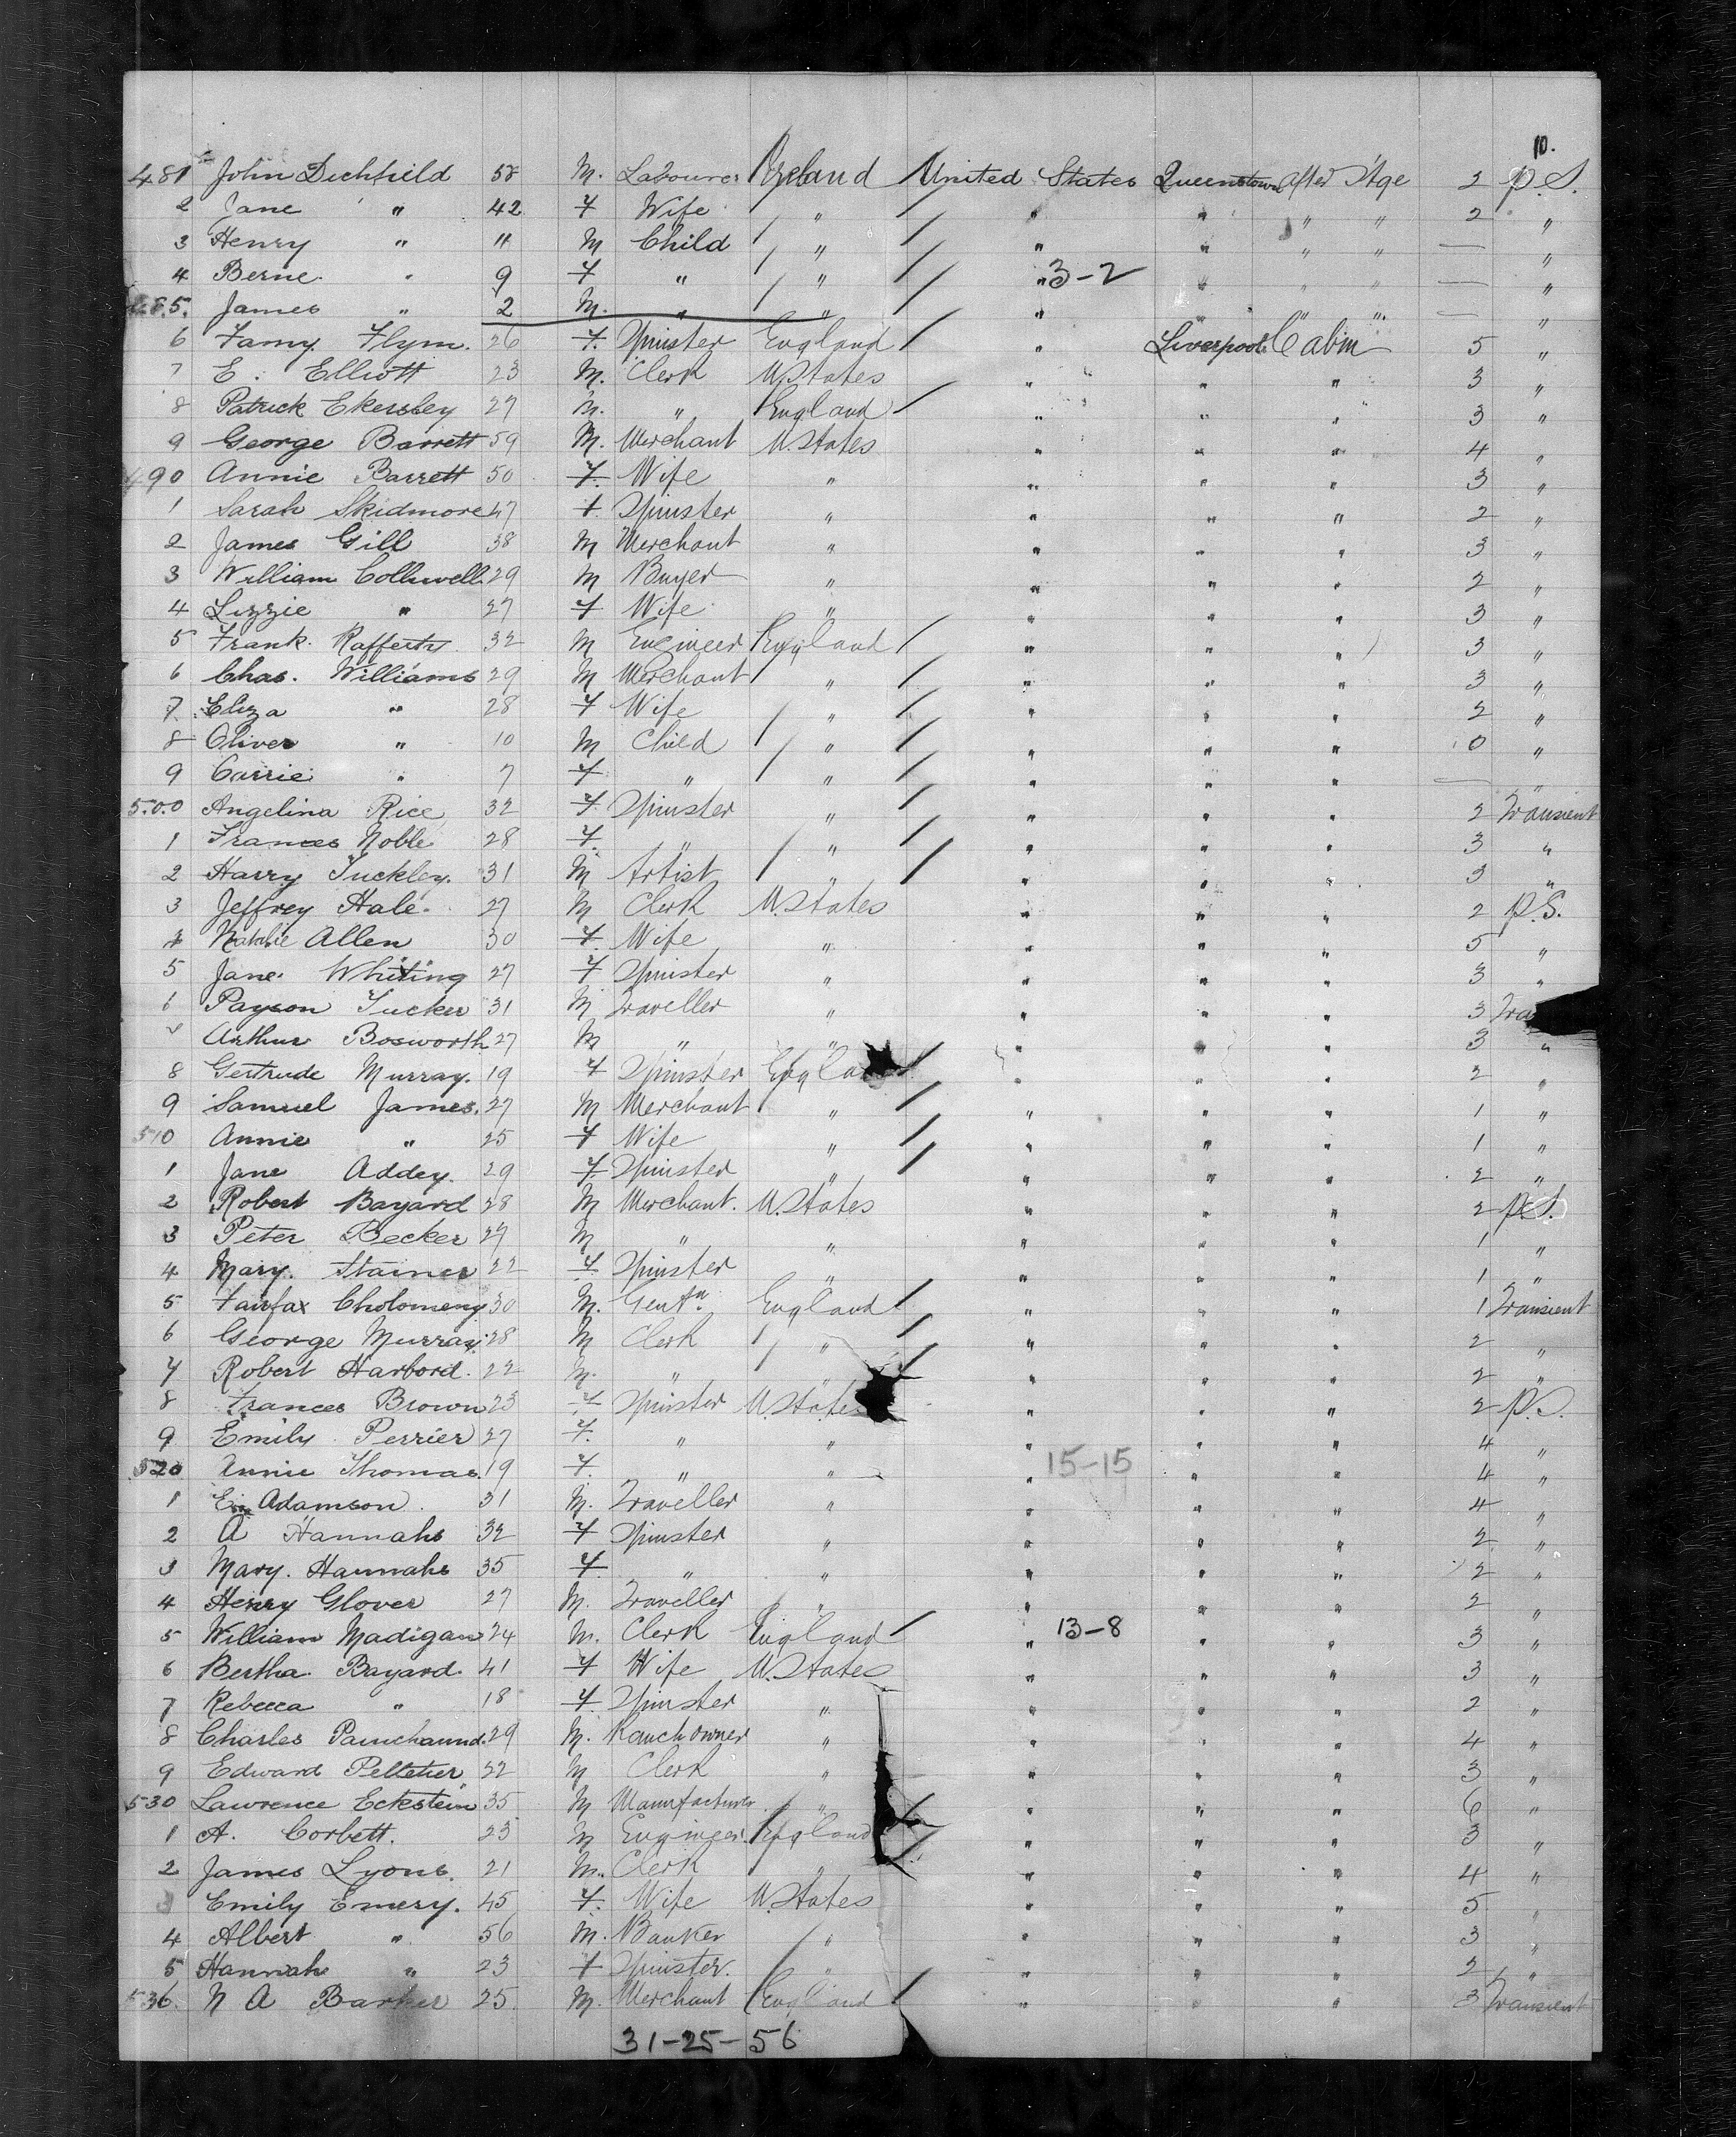 10.
481 John Dechfield 58 M. Labourer Ireland United States Queenstown after St'age 2 P.S.
2 Jane " 42 F Wife " " " " " 2 "
3 Henry " 11 M Child " " " " " — "
4 Berne " 9 F " " " 3-2 " " " — "
485. James " 2 M. " " " " " — "
6 Fanny Flynn. 26 F. Spinster England " Liverpool Cabin 5 "
7 E. Elliott 23 M. Clerk U.States " " " 3 "
8 Patrick Ekersley 27 M. " England " " " 3 "
9 George Barrett 59 M. Merchant U.States " " " 4 "
490 Annie Barrett 50 F. Wife " " " " 3 "
1 Sarah Skidmore 47 F Spinster " " " " 2 "
2 James Gill 38 M Merchant " " " " 3 "
3 William Colliwell 29 M Buyer " " " " 2 "
4 Lizzie " 27 F Wife " " " " 3 "
5 Frank Rafferty 32 M Engineer England " " " 3 "
6 Chas. Williams 29 M Merchant " " " " 3 "
7 Eliza " 28 F Wife " " " " 2 "
8 Oliver " 10 M Child " " " " 0 "
9 Carrie " 7 F " " " " " — "
500 Angelina Rice 32 F Spinster " " " " 2 Transient
1 Frances Noble 28 F. " " " " " 3 "
2 Harry Tuckley. 31 M Artist " " " " 3 "
3 Jeffrey Hale. 27 M Clerk U.States " " " 2 P.S.
4 Natalie Allen 30 F. Wife " " " " 5 "
5 Jane Whiting 27 F Spinster " " " " 3 "
6 Payson Tucker 31 M Traveller " " " " 3 Tra
7 Arthur Bosworth 27 M " " " " " 3 "
8 Gertrude Murray. 19 F Spinster England " " " 2 "
9 Samuel James. 27 M Merchant " " " " 1 "
510 Annie " 25 F Wife " " " " 1 "
1 Jane Addey. 29 F. Spinster " " " " 2 "
2 Robert Bayard 28 M Merchant. U.States " " " 2 P.S.
3 Peter Becker 27 M " " " " " 1 "
4 Mary. Stainer 22 F. Spinster " " " " 1 "
5 Fairfax Cholomeny 30 M. Gentn. England " " " 1 Transient
6 George Murray. 28 M Clerk " " " " 2 "
7 Robert Harbord. 22 M. " " " " " 2 "
8 Frances Brown 23 F Spinster U.States " " " 2 P.S.
9 Emily Perrier 27 F. " " " " " 4 "
520 Annie Thomas. 19 F. " " " 15-15 " " 4 "
1 E. Adamson. 31 M. Traveller " " " " 4 "
2 A Hannahs 32 F Spinster " " " " 2 "
3 Mary. Hannahs 35 F " " " " " 2 "
4 Henry Glover 27 M. Traveller " " " " 2 "
5 William Madigan 24 M. Clerk England " 13-8 " " 3 "
6 Bertha Bayard. 41 F Wife U.States " " " 3 "
7 Rebecca " 18 F. Spinster " " " " 2 "
8 Charles 29 M. Ranch owner " " " " 4 "
9 Edward Pelletier 22 M Clerk " " " " 3 "
530 Lawrence Eckstein 35 M Manufacturer " " " " 6 "
1 A. Corbett. 23 M Engineer. England " " " 3 "
2 James Lyons. 21 M. Clerk " " " " 4 "
3 Emily Emery. 45 F. Wife U.States " " " 5 "
4 Albert " 56 M. Banker " " " " 3 "
5 Hannah " 23 F Spinster. " " " " 2 "
536. N A Barker 25 M. Merchant England " " " 3 Transient
31-25-56